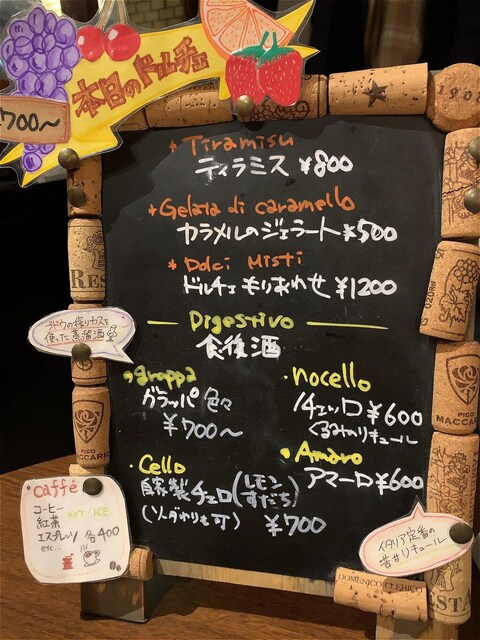 本日のドルチェ
700〜
Tiramisu
ティラミス ¥800
Gelata di caramello
カラメルのジェラート ¥500
Dolci Misti
ドルチェもりあわせ ¥1200
Digestivo
食後酒
grappa
グラッパ 色々
¥700〜
nocello
ノチェッロ ¥600
くるみのリキュール
Cello
自家製チェロ(レモン すだち)
(ソーダわりも可) ¥700
Amaro
アマーロ ¥600
ブドウの搾りカスを
使った蒸留酒
caffé
コーヒー HOT/ICE
紅茶
エスプレッソ 各400
etc...
イタリア定番の
苦甘リキュール
1908
REST
PICO
MACCARIO
PICO
MACCARIO
DOMENICO CLERICO
ESTA